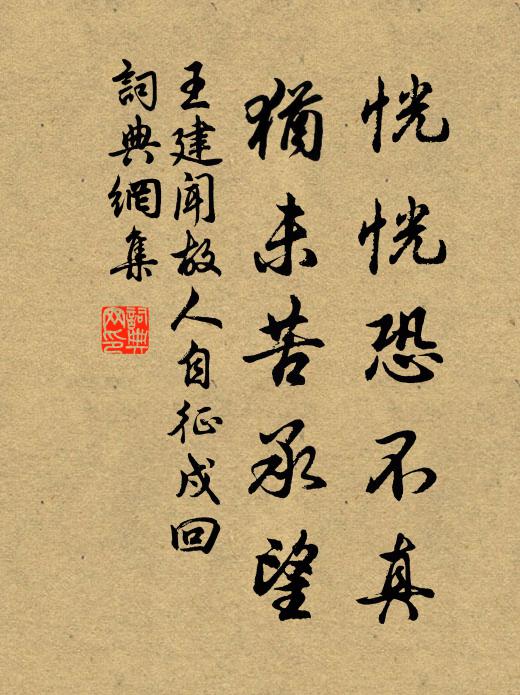 恍恍恐不真
猶未苦承望
王建聞故人自征戍回
詞典網集
詞典網印